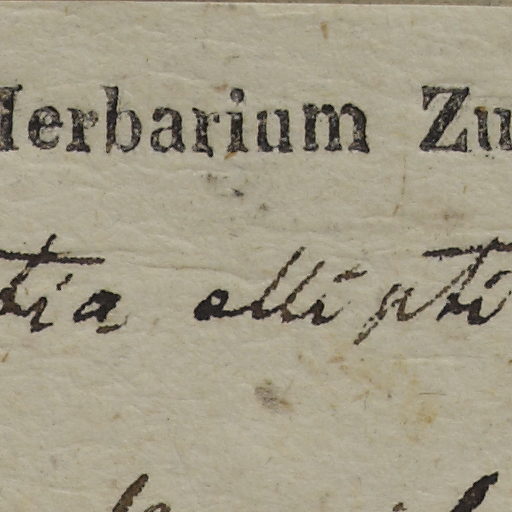 Herbarium Zu
tia ellipti